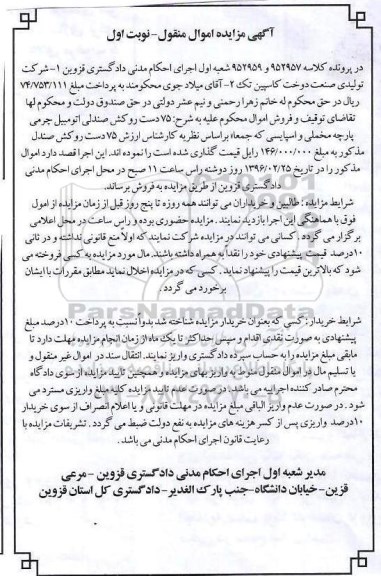 آگهی مزایده اموال منقول-نوبت اول
در پرونده کلاسه ۹۵۲۹۵۷ و ۹۵۲۹۵۹ شعبه اول اجرای احکام مدنی دادگستری قزوین ۱-شرکت
تولیدی صنعت دوخت کاسپین تک ۲-آقای میلاد جوی محکومند به پرداخت مبلغ ۷۴/۷۵۳/۱۱۱
ریال در حق محکوم له خانم زهرا رحمنی و نیم عشر دولتی در حق صندوق دولت و محکوم لها
تقاضای توقیف و فروش اموال محکوم علیه به شرح: ۷۵ دست روکش صندلی اتومبیل چرمی
پارچه مخملی و اسپایسی که جمعاً براساس نظریه کارشناس ارزش ۷۵ دست روکش صندل
مذکور به مبلغ ۱۴۶/۰۰۰/۰۰۰ رایل قیمت گذاری شده است را نموده اند. این اجرا قصد دارد اموال
مذکور را در تاریخ ۱۳۹۶/۰۲/۲۵ روز دوشنه راس ساعت ۱۱ صبح در محل اجرای احکام مدنی
دادگستری قزوین از طریق مزایده به فروش برساند.
شرایط مزایده: طالبین و خریداران می توانند همه روزه تا پنج روز قبل از زمان مزایده از اموال
فوق با هماهنگی این اجرا بازدید نمایند. مزایده حضوری بوده و راس ساعت در محل اعلامی
برگزار می گردد. کسانی می توانند در مزایده شرکت نمایند که اولاً منع قانونی نداشته و در ثانی
۱۰درصد قیمت پیشنهادی خود را نقداً به همراه داشته باشند. مال مورد مزایده به کسی فروخته می
شود که بالاترین قیمت را پیشنهاد نماید. کسی که در مزایده اخلال نماید مطابق مقررات با ایشان
برخورد می گردد.
شرایط خریدار: کسی که بعنوان خریدار مزایده شناخته شد بدواً نسبت به پرداخت ۱۰درصد مبلغ
پیشنهادی به صورت نقدی اقدام و سپس حداکثر تا یک ماه از زمان انجام مزایده مهلت دارد تا
مابقی مبلغ مزایده را به حساب سپرده دادگستری واریز نمایند. انتقال سند در اموال غیر منقول و
یا تسلیم مال در اموال منقول منوط به واریز بهای مزایده و همچنین تایید مزایده از سوی دادگاه
محترم صادر کننده اجرائیه می باشد. در صورت عدم تایید مزایده کلیه مبلغ واریزی مسترد می
شود. در صورت عدم واریز الباقی مبلغ مزایده در مهلت قانونی و یا اعلام انصراف از سوی خریدار
۱۰درصد واریزی پس از کسر هزینه های مزایده به نفع دولت ضبط می گردد. تشریفات مزایده با
رعایت قانون اجرای احکام مدنی می باشد.
مدیر شعبه اول اجرای احکام مدنی دادگستری قزوین -مرعی
قزین-خیابان دانشگاه-جنب پارک الغدیر-دادگستری کل استان قزوین